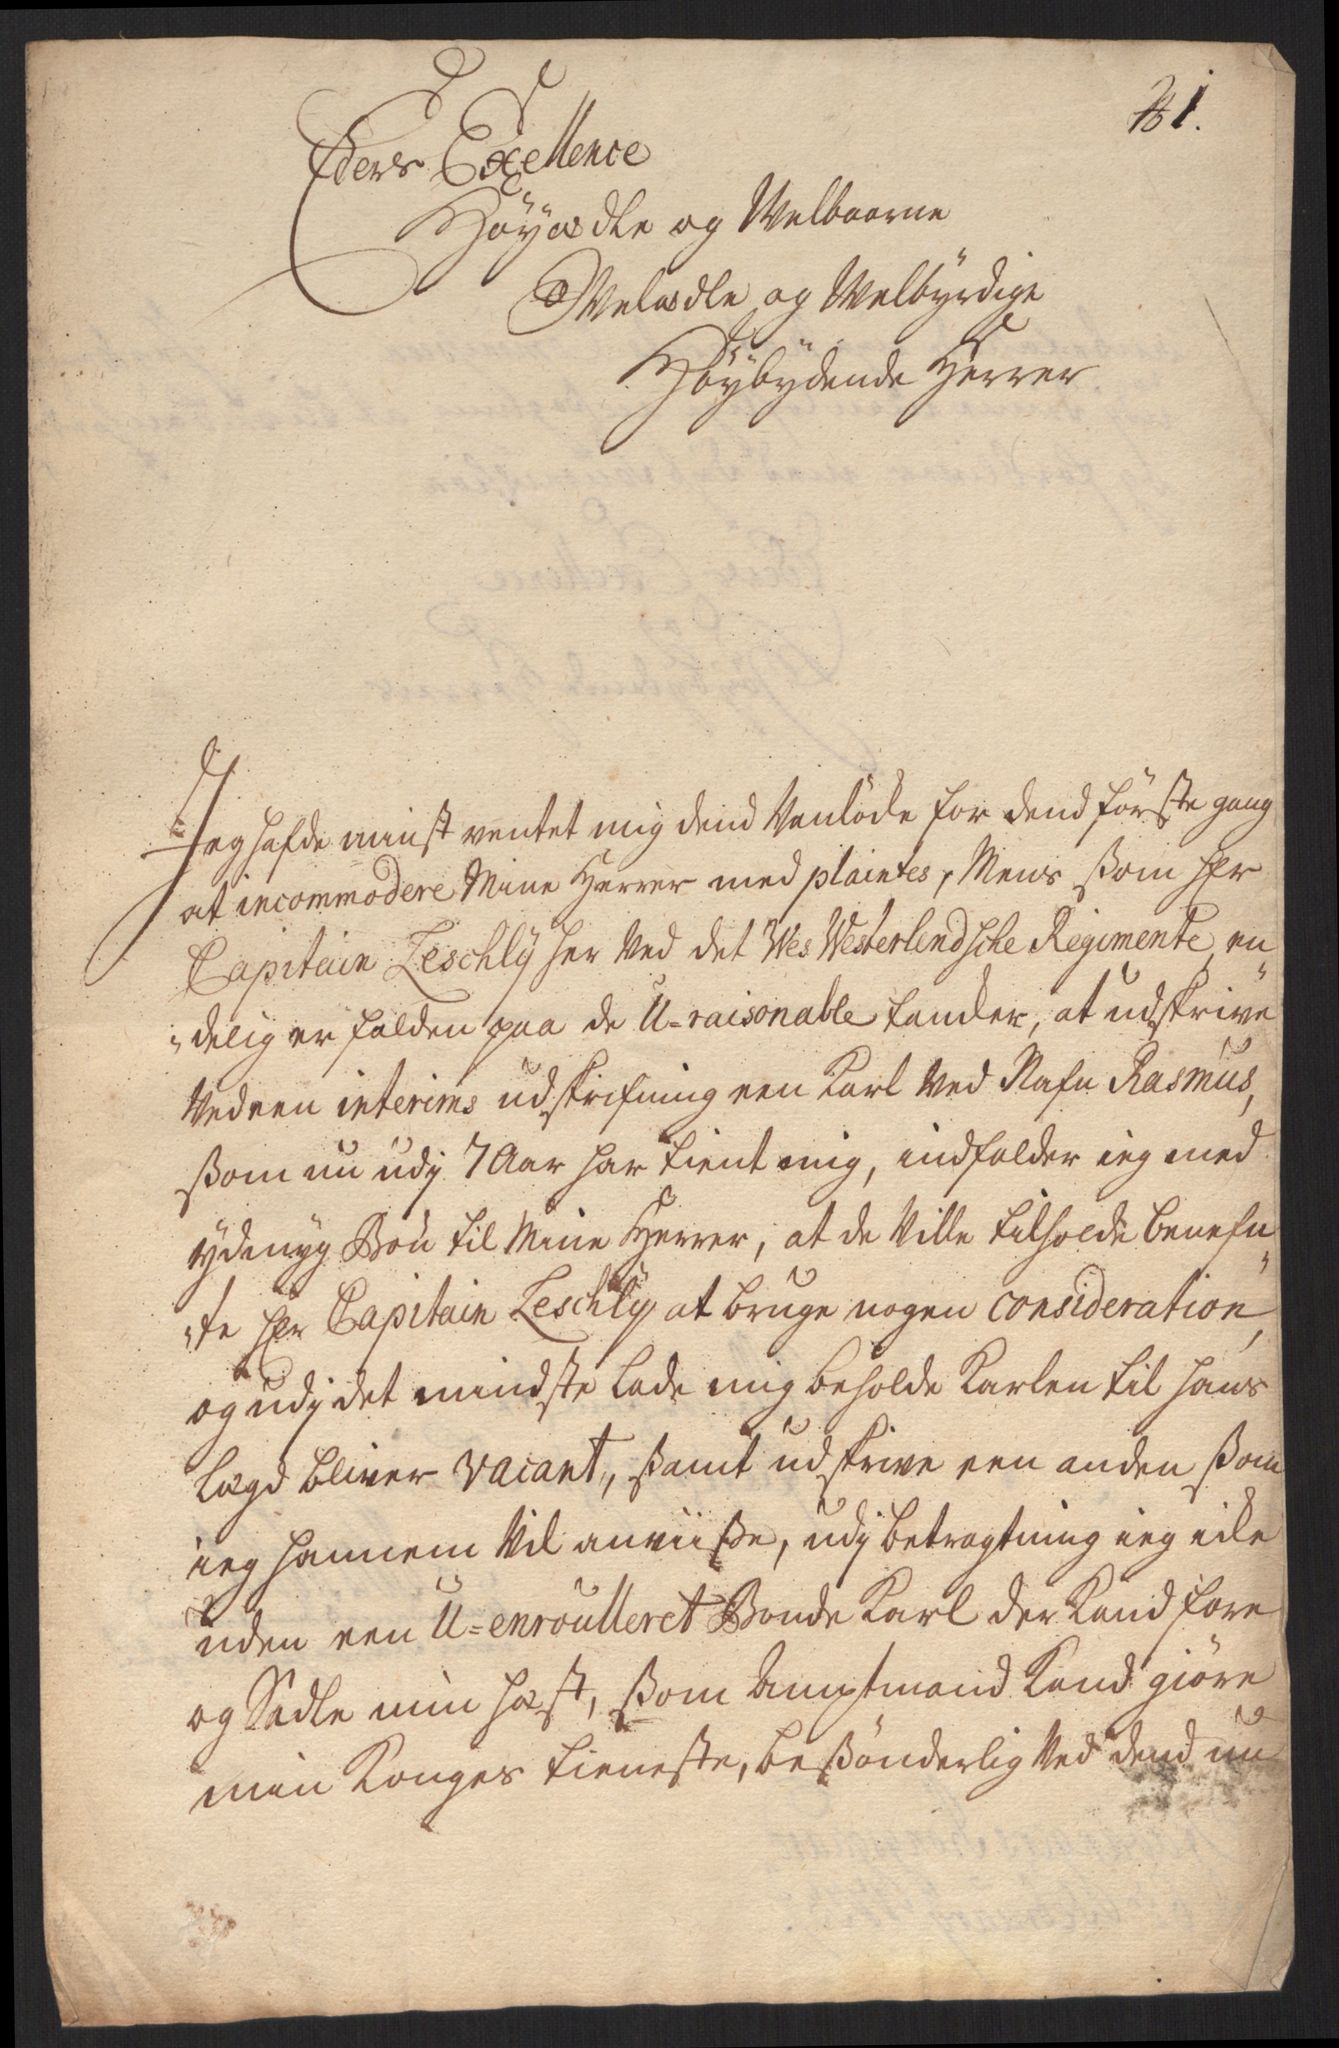 1.
Eders Excellence
Höyædle og Welbaarne
Welædle og Welbyrdige
Höybydende Herrer
Jeg hafde minst ventet mig dend Vanlöde for dend förste gang
at incommodere Mine Herrer med plaintes, Mens ßom Hr
Capitain Leschlÿ her ved det Wes Westerlendsche Regimente en
"delig er falden paa de U=raisonable tancker, at udskrive
ved een interims udskrifning een Karl ved Nafn Rasmus,
ßom nu udj 7 Aar har tient mig, indfalder ieg med
ydmyg Bön til Mine Herrer, at de ville tilholde benefn
"te Hr Capitain Leschlÿ at bruge nogen consideration,
og udj det mindste lade mig beholde Karlen til hans
Lægd bliver vacant, ßamt udskrive een anden ßom
ieg hannem vil anviiße, udj betragtning ieg icke
uden een U=enroulleret Bonde Karl der kand fore
og Sadle min hæst, ßom Amptmand kand giöre
min Konges tieneste, beßönderlig ved dend nu